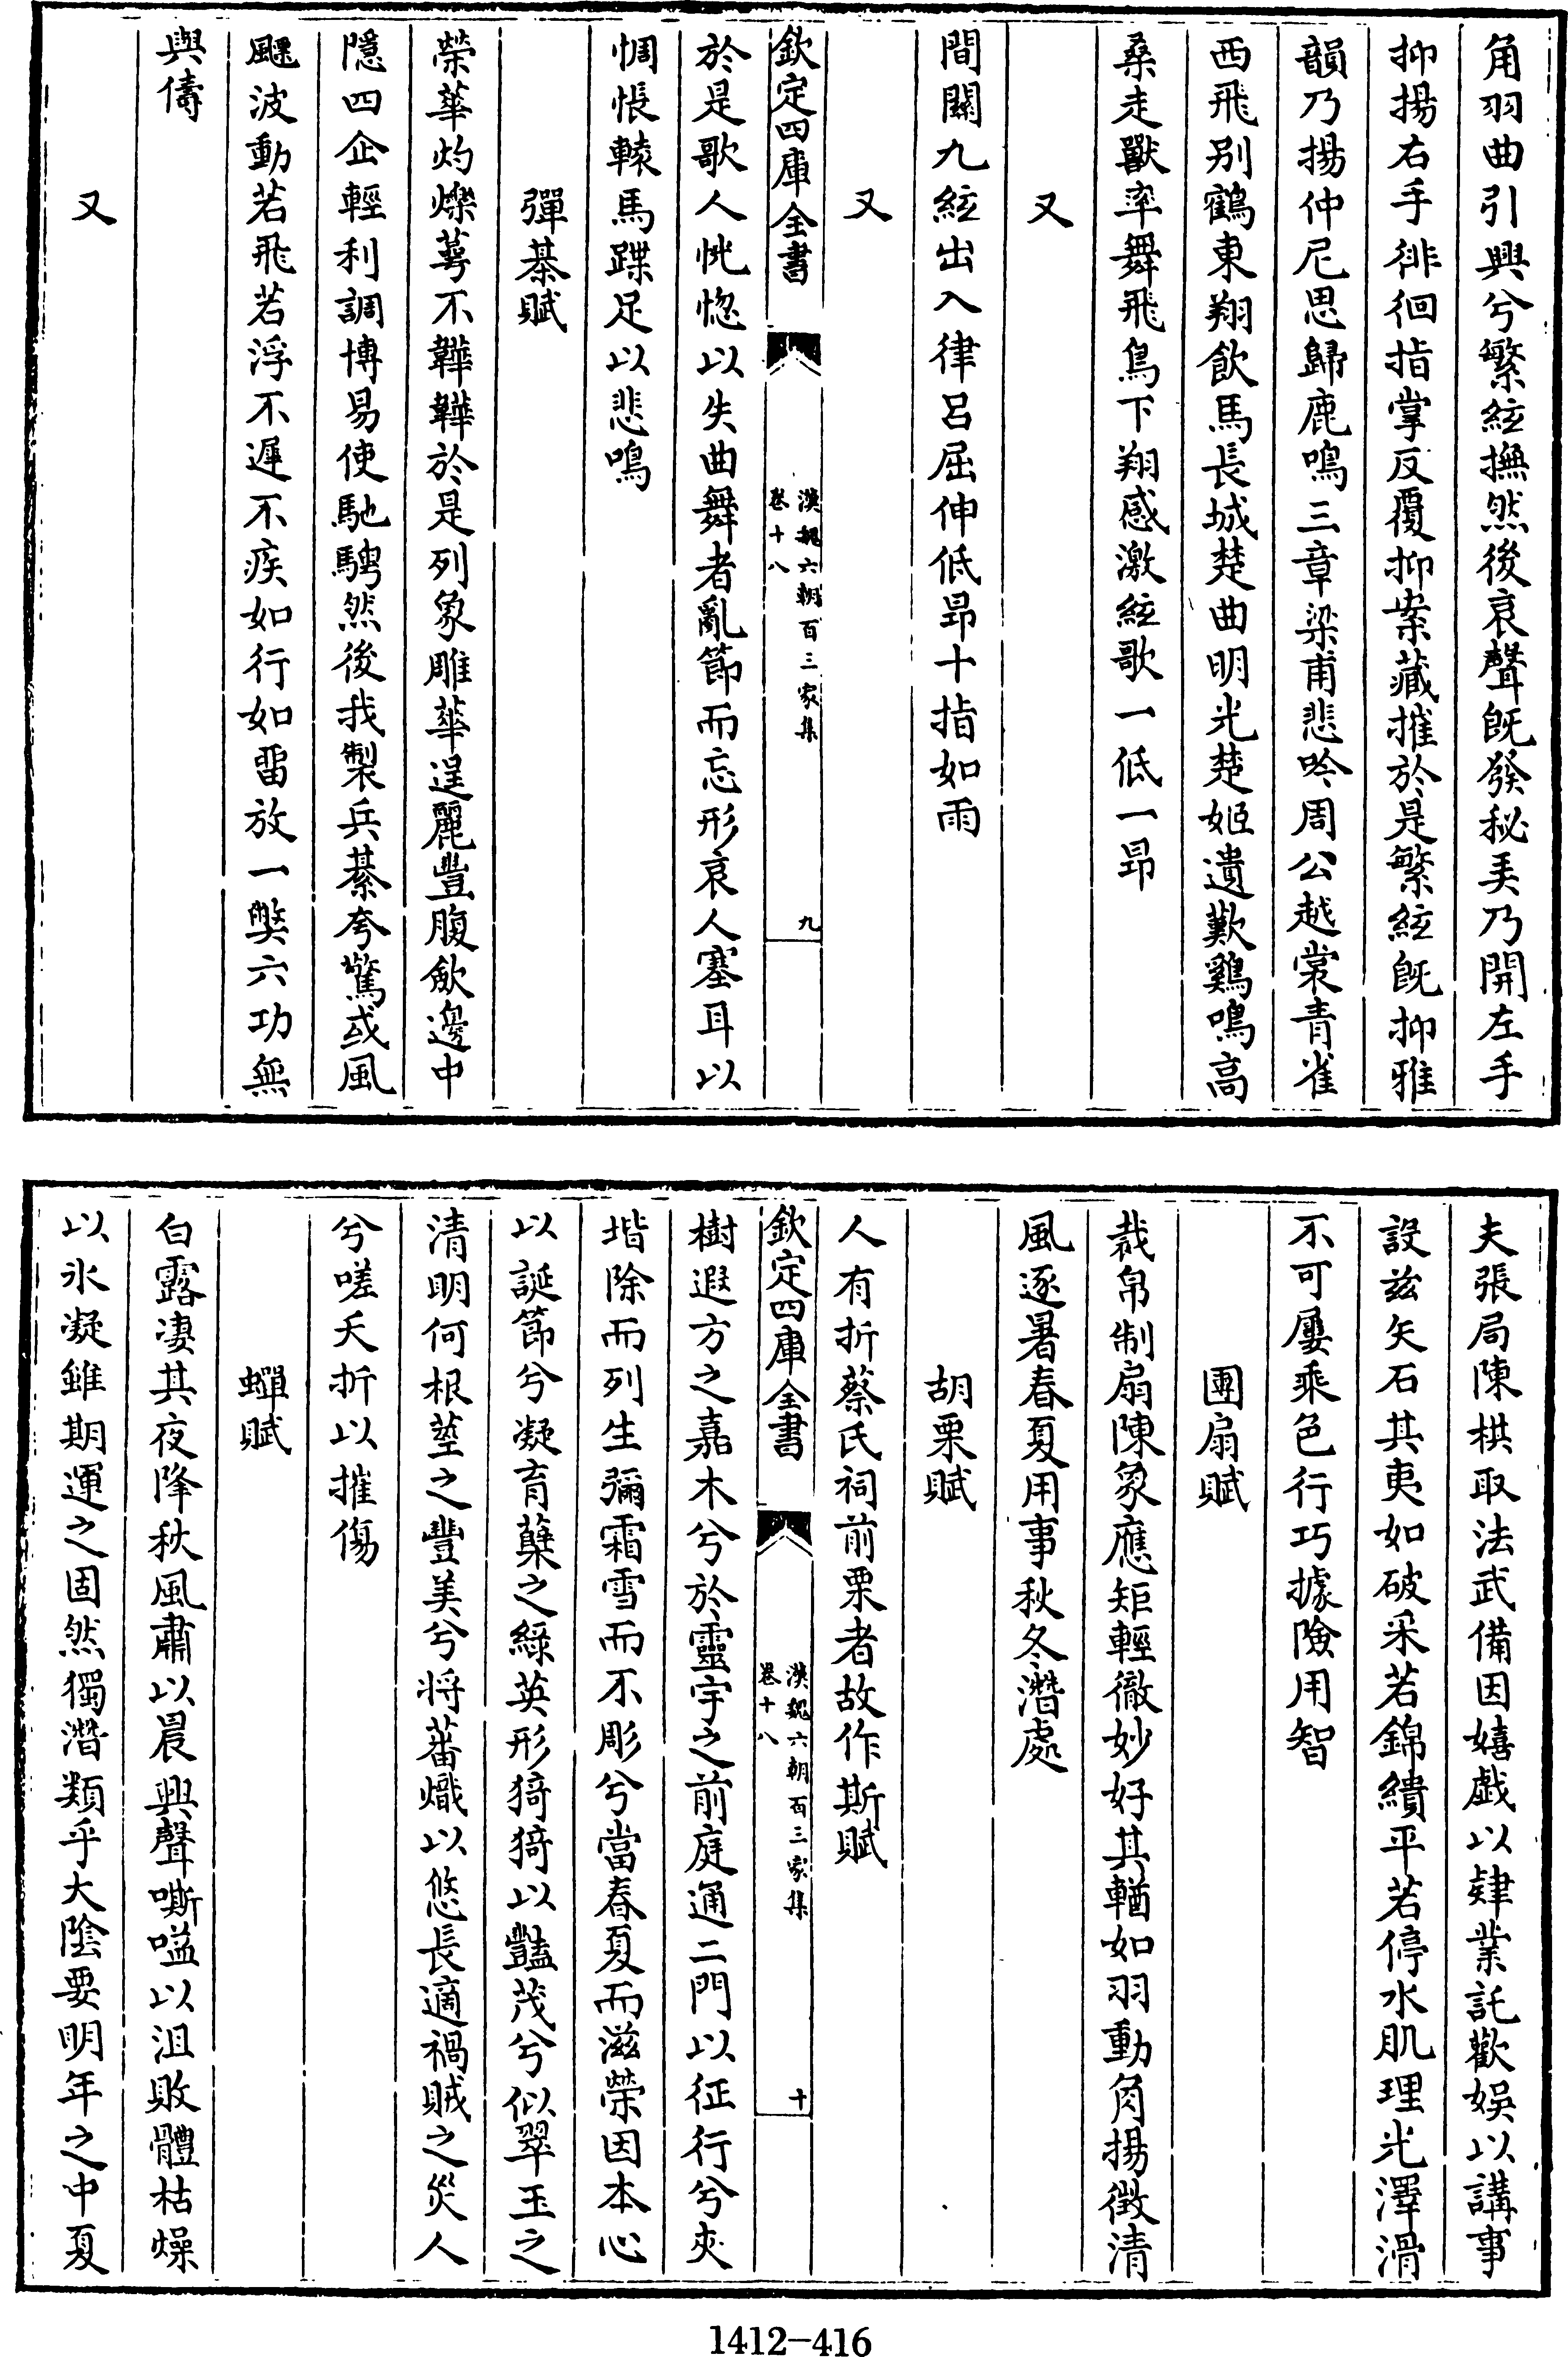 角羽曲引興兮繁絃撫然後哀聲旣發秘弄乃開左手
抑揚右手徘徊指掌反覆抑案藏摧於是繁絃旣抑雅
韻乃揚仲尼思歸鹿鳴三章梁甫悲吟周公越裳青雀
西飛别鶴東翔飲馬長城楚曲明光楚姬遺歎鷄鳴高
桑走獸率舞飛鳥下翔感激絃歌一低一昻
又
間關九絃出入律呂屈伸低昻十指如雨
又
欽定四庫全書
漢魏六朝百三家集
卷十八
九
於是歌人恍惚以失曲舞者亂節而忘形哀人塞耳以
惆悵轅馬蹀足以悲鳴
彈棊賦
榮華灼爍萼不韡韡於是列象雕華逞麗豐腹斂邊中
隱四企輕利調博易使馳騁然後我製兵棊夸驚或風
飄波動若飛若浮不遲不疾如行如畱放一弊六功無
與儔
又
夫張局陳棋取法武備因嬉戲以肄業託歡娛以講事
設兹矢石其夷如破采若錦繢平若停水肌理光澤滑
不可屢乘色行巧據險用智
團扇賦
裁帛制扇陳象應矩輕徹妙好其輶如羽動角揚徴清
風逐暑春夏用事秋冬潛處
胡栗賦
人有折蔡氏祠前栗者故作斯賦
欽定四庫全書
漢魏六朝百三家集
卷十八
十
樹遐方之嘉木兮於靈宇之前庭通二門以征行兮夾
堦除而列生彌霜雪而不彫兮當春夏而滋榮因本心
以誕節兮凝育蘖之緑英形猗猗以豔茂兮似翠玉之
清明何根莖之豐美兮將蕃熾以悠長適禍賊之災人
兮嗟夭折以摧傷
蟬賦
白露凄其夜降秋風肅以晨興聲嘶嗌以沮敗體枯燥
以氷凝雖期運之固然獨潛類乎大陰要明年之中夏
1412-416